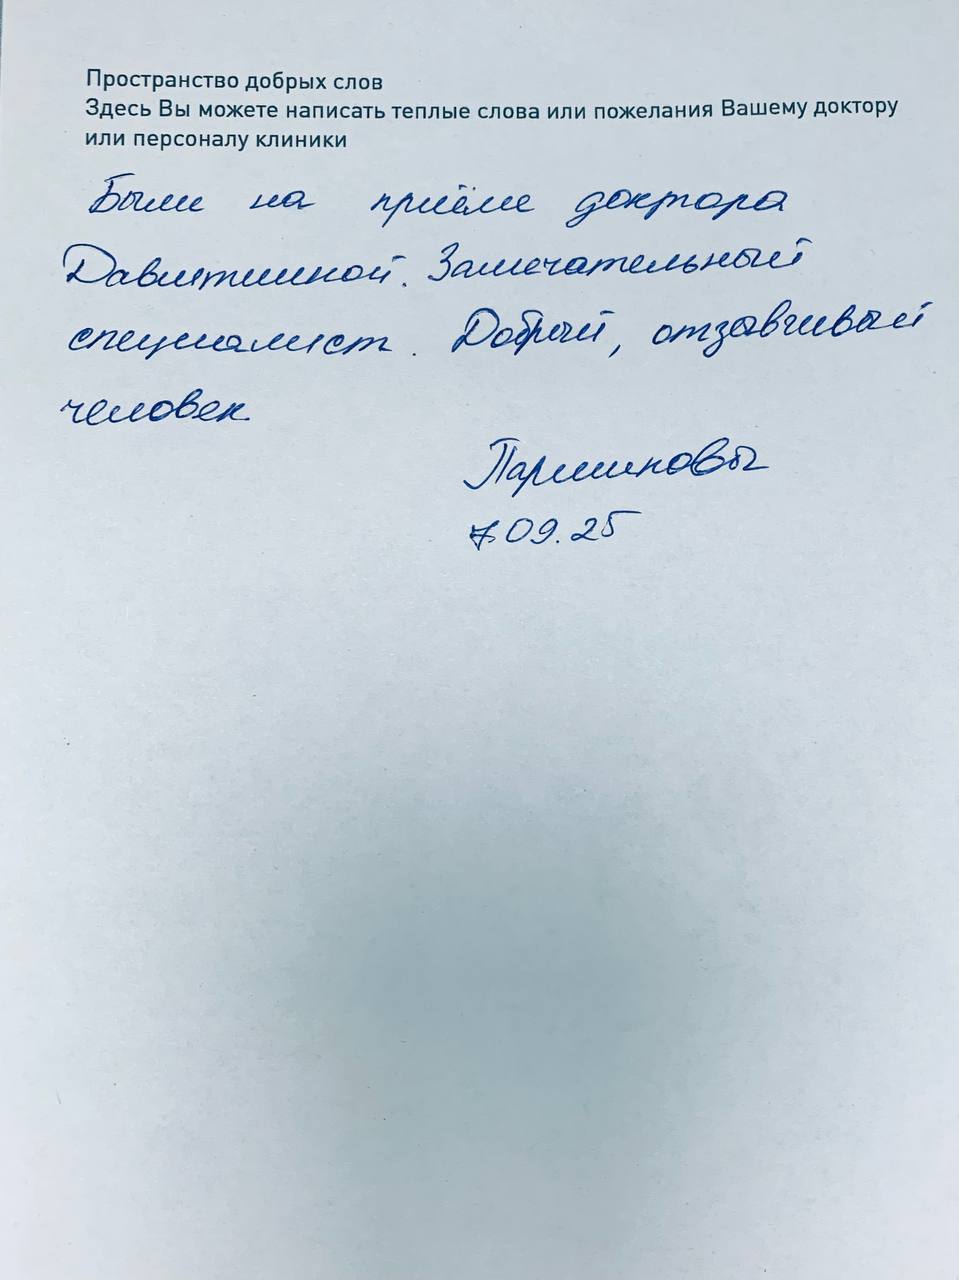 Пространство добрых слов
Здесь Вы можете написать теплые слова или пожелания Вашему доктору
или персоналу клиники
Были на приёме доктора
Замечательный
специалист. Добрый, отзывчивый
человек
7.09.25